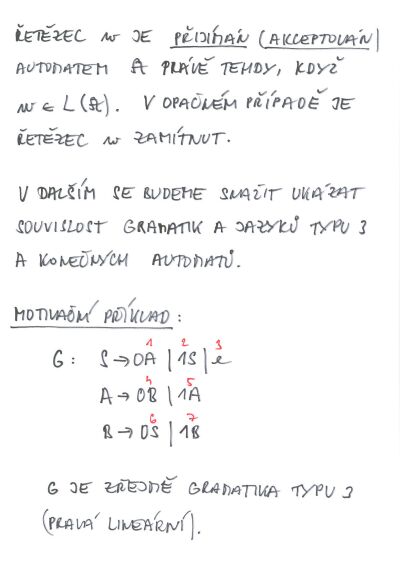 ŘETĚZEC w JE PŘIJÍMÁN (AKCEPTOVÁN)
AUTOMATEM A PRÁVĚ TEHDY, KDYŽ
w ∈ L(A). V OPAČNÉM PŘÍPADĚ JE
ŘETĚZEC w ZAMÍTNUT.
V DALŠÍM SE BUDEME SNAŽIT UKÁZAT
SOUVISLOST GRAMATIK A JAZYKŮ TYPU 3
A KONEČNÝCH AUTOMATŮ.
MOTIVAČNÍ PŘÍKLAD:
1 2 3
G: S → 0A | 1S | e
4 5
A → 0B | 1A
6 7
B → 0S | 1B
G JE ZŘEJMĚ GRAMATIKA TYPU 3
(PRAVÁ LINEÁRNÍ).